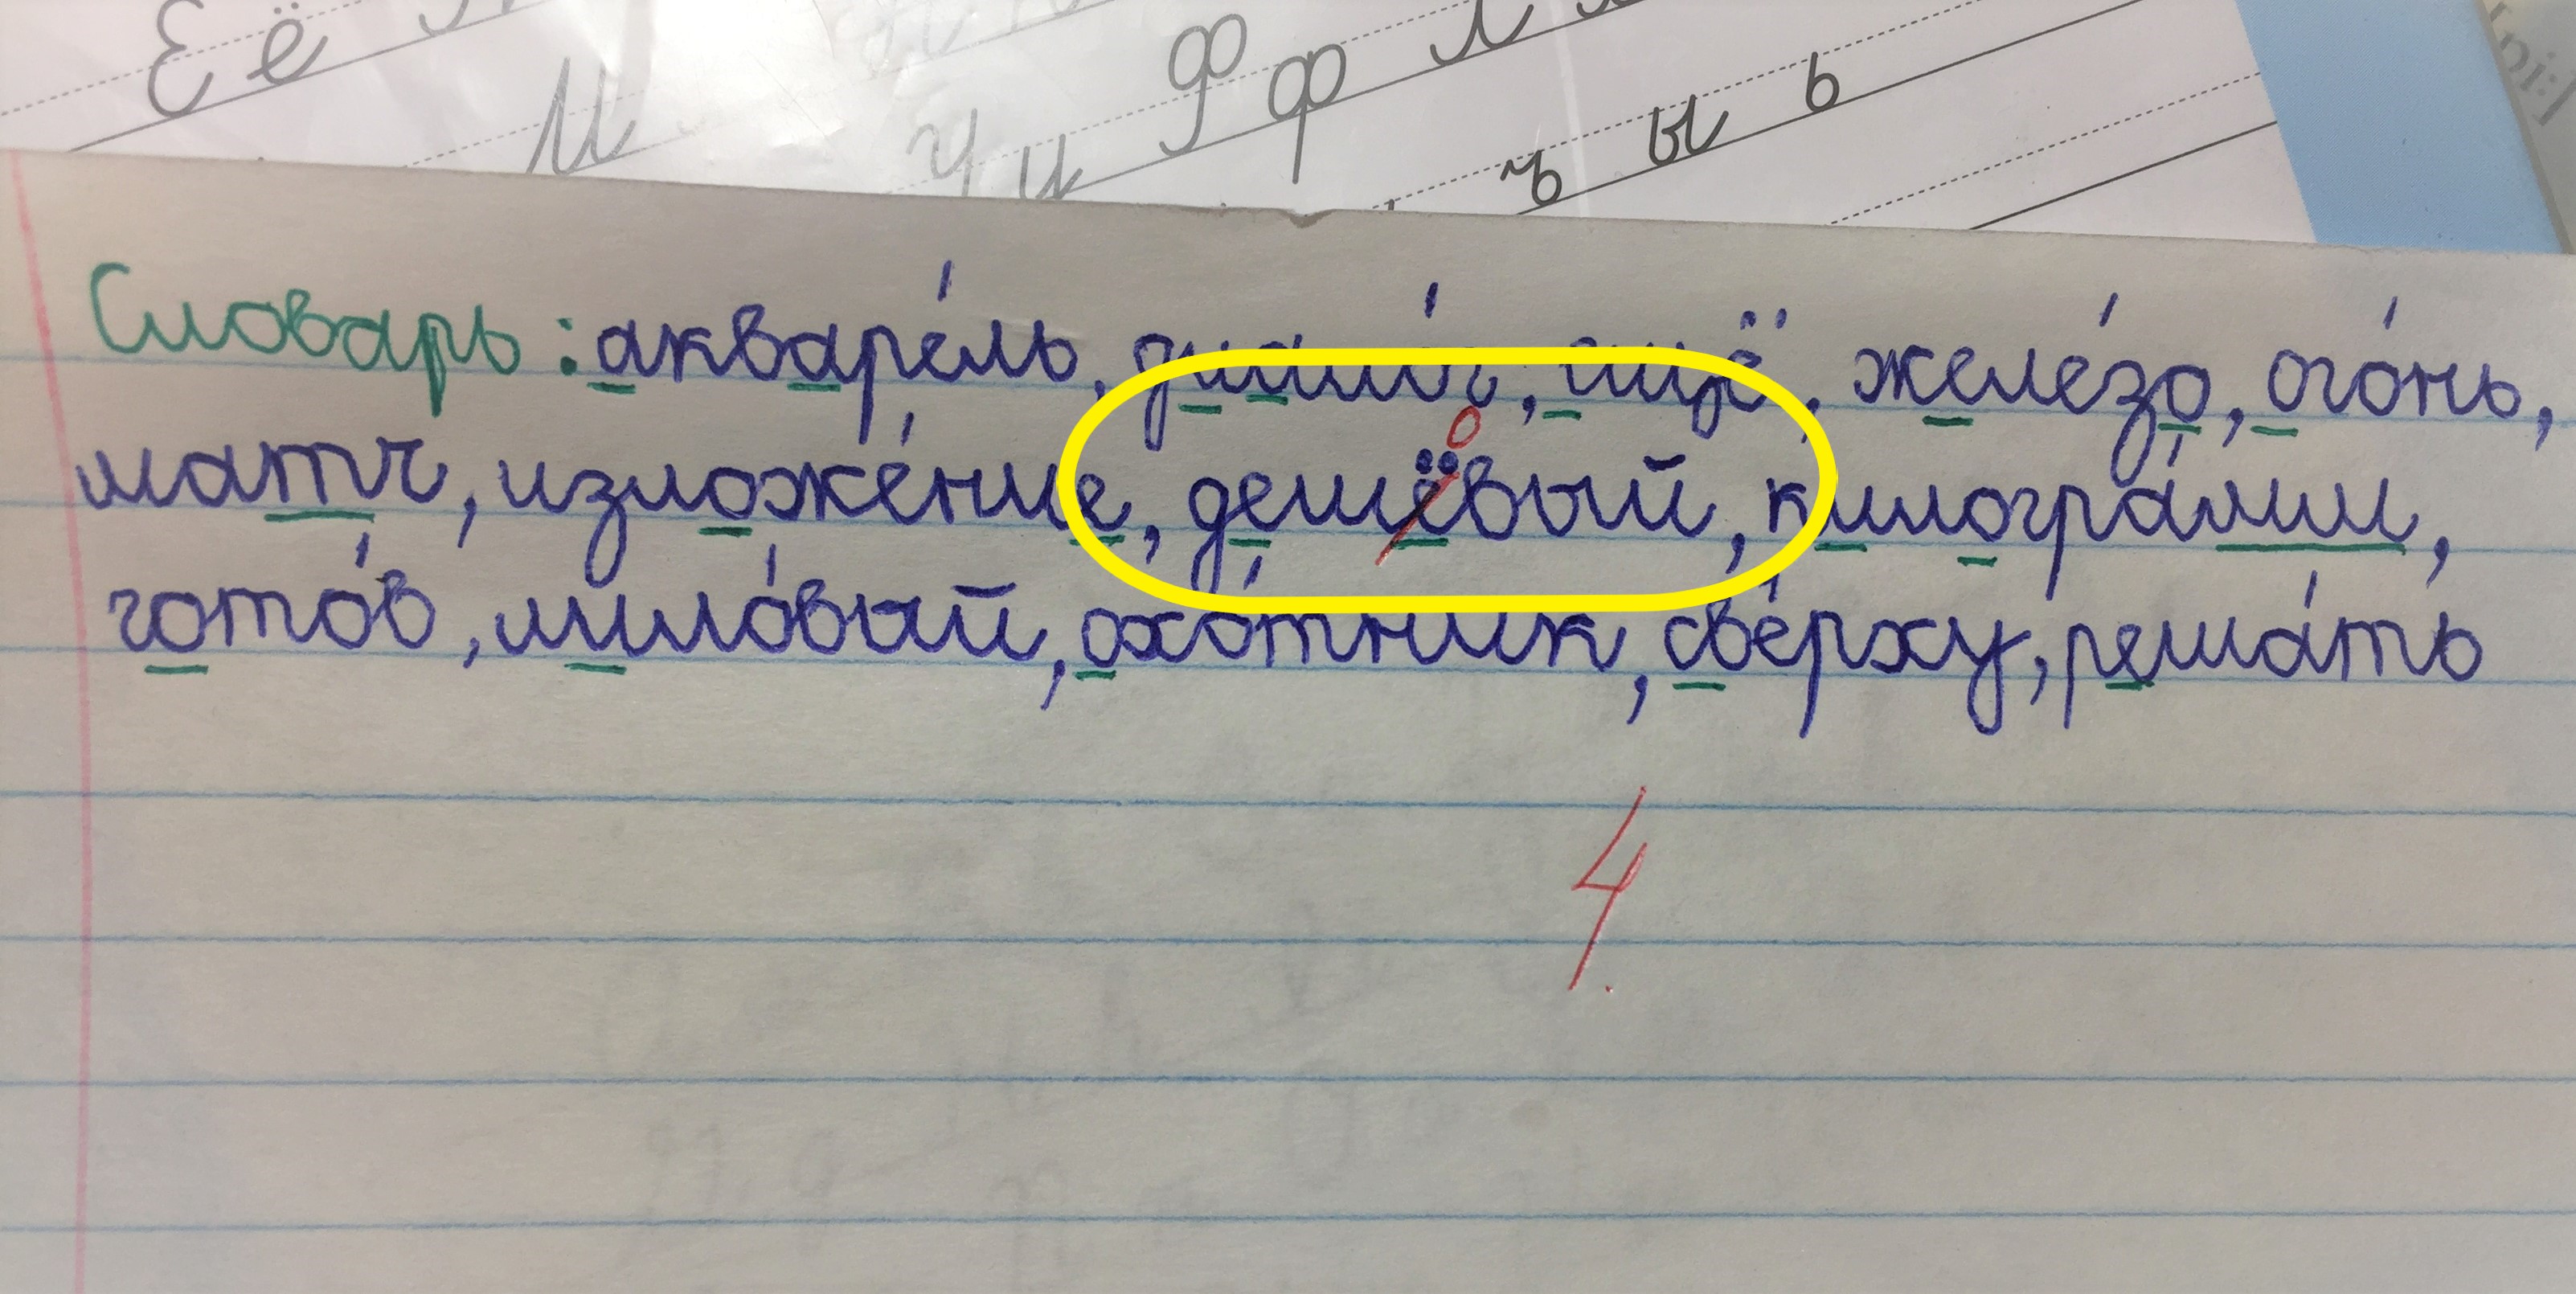 Ё ё
И
У у Ф ф Х
ъ ы ь
Словарь: акваре́ль, диало́г, ещё, желе́зо, ого́нь,
матч, изложе́ние, дешёвый, килогра́мм,
гото́в, лило́вый, охо́тник, све́рху, реша́ть
о
4.